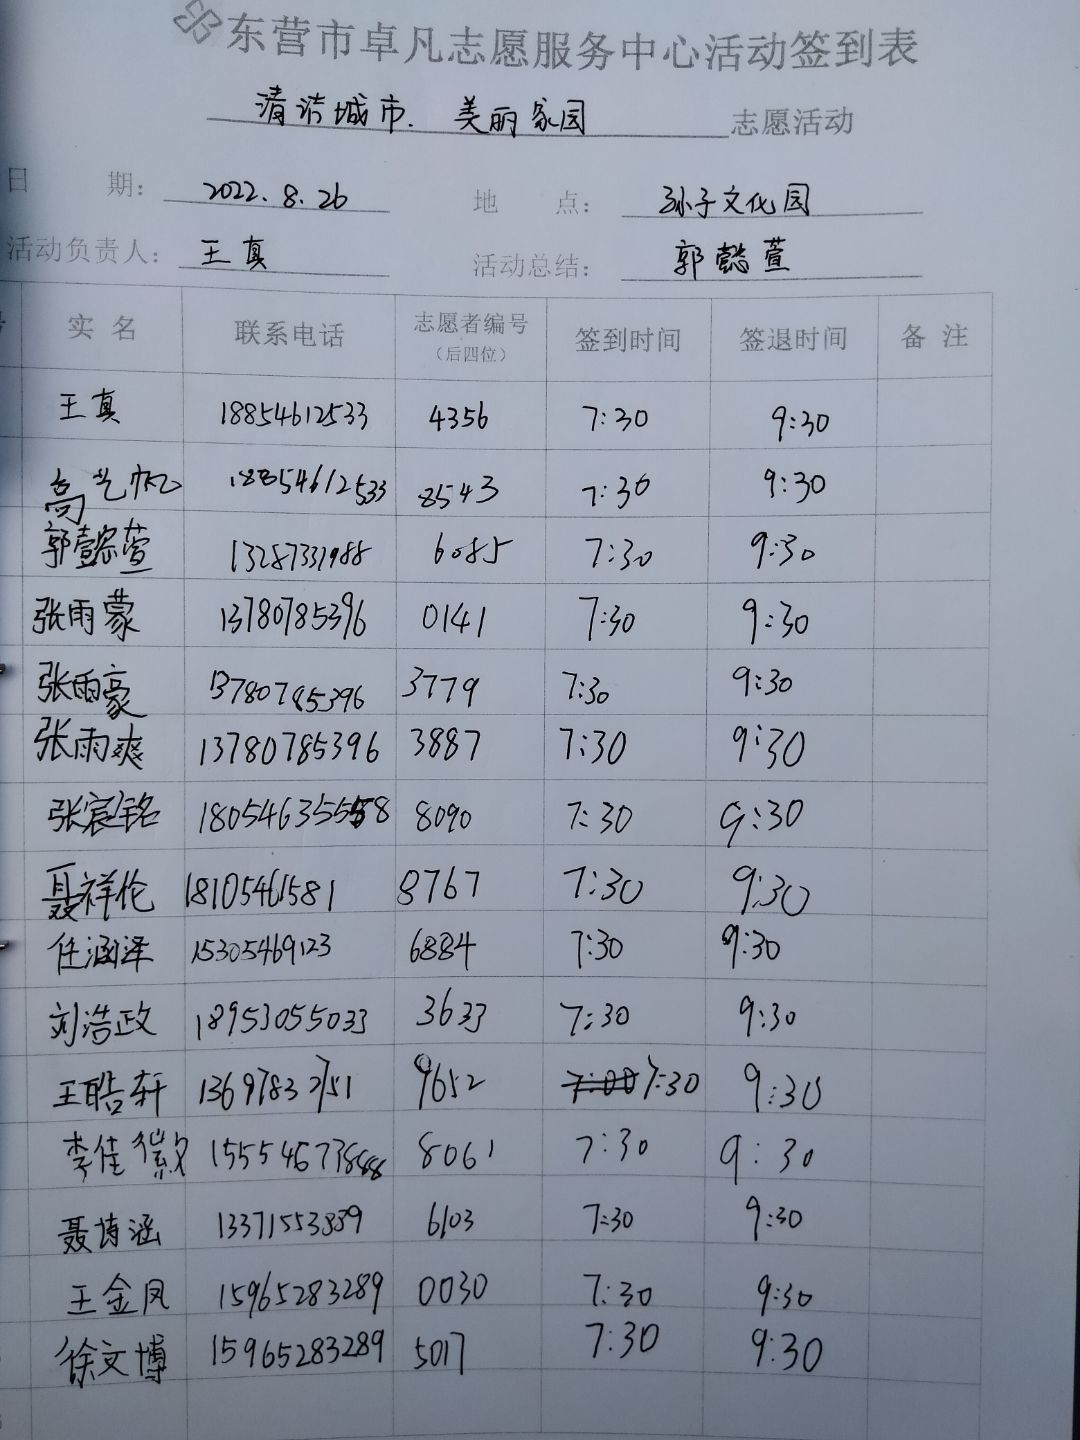 东营市卓凡志愿服务中心活动签到表
清洁城市.美丽家园 志愿活动
日 期: 2022.8.26 地 点: 孙子文化园
活动负责人: 王真 活动总结: 郭懿萱
实名 联系电话 志愿者编号(后四位) 签到时间 签退时间 备注
王真 18854612533 4356 7:30 9:30
高艺帆 18854612533 8543 7:30 9:30
郭懿萱 13287331988 6085 7:30 9:30
张雨蒙 13780785396 0141 7:30 9:30
张雨豪 13780785396 3779 7:30 9:30
张雨爽 13780785396 3887 7:30 9:30
张宸铭 18054635558 8090 7:30 9:30
聂祥伦 18105461581 8767 7:30 9:30
任涵泽 15305469123 6884 7:30 9:30
刘浩政 18953055033 3633 7:30 9:30
王皓轩 13697832751 9652 7:30 9:30
李佳徽 8061 7:30 9:30
聂博涵 13371553859 6103 7:30 9:30
王金凤 15965283289 0030 7:30 9:30
徐文博 15965283289 5017 7:30 9:30